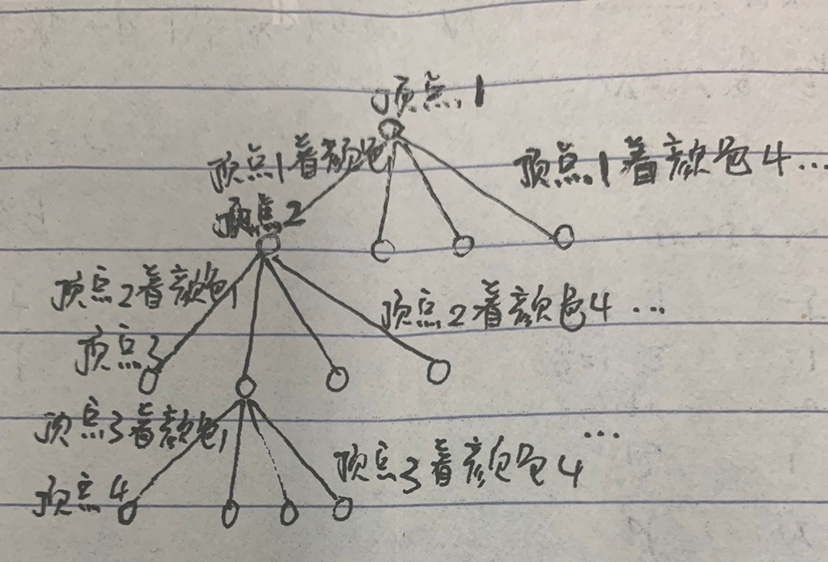 顶点1
顶点1着颜色1
顶点1着颜色4...
顶点2
顶点2着颜色1
顶点2着颜色4...
顶点3
顶点3着颜色1
顶点3着颜色4...
顶点4